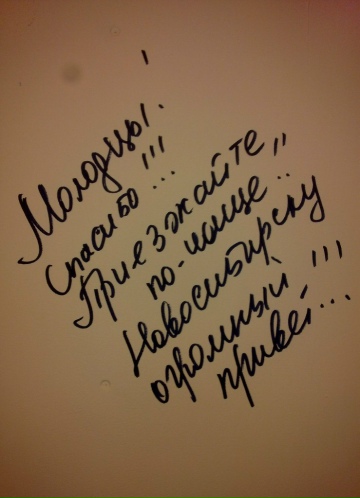 Молодцы!
Спасибо...!!!
Приезжайте,,
по-чаще..
Новосибирску
огромный !!!
привет...